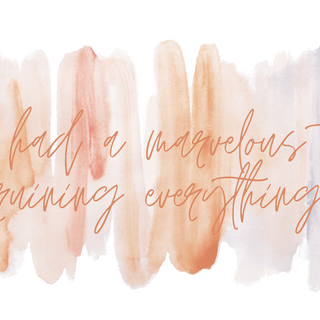 had a marvelous
ruining everything